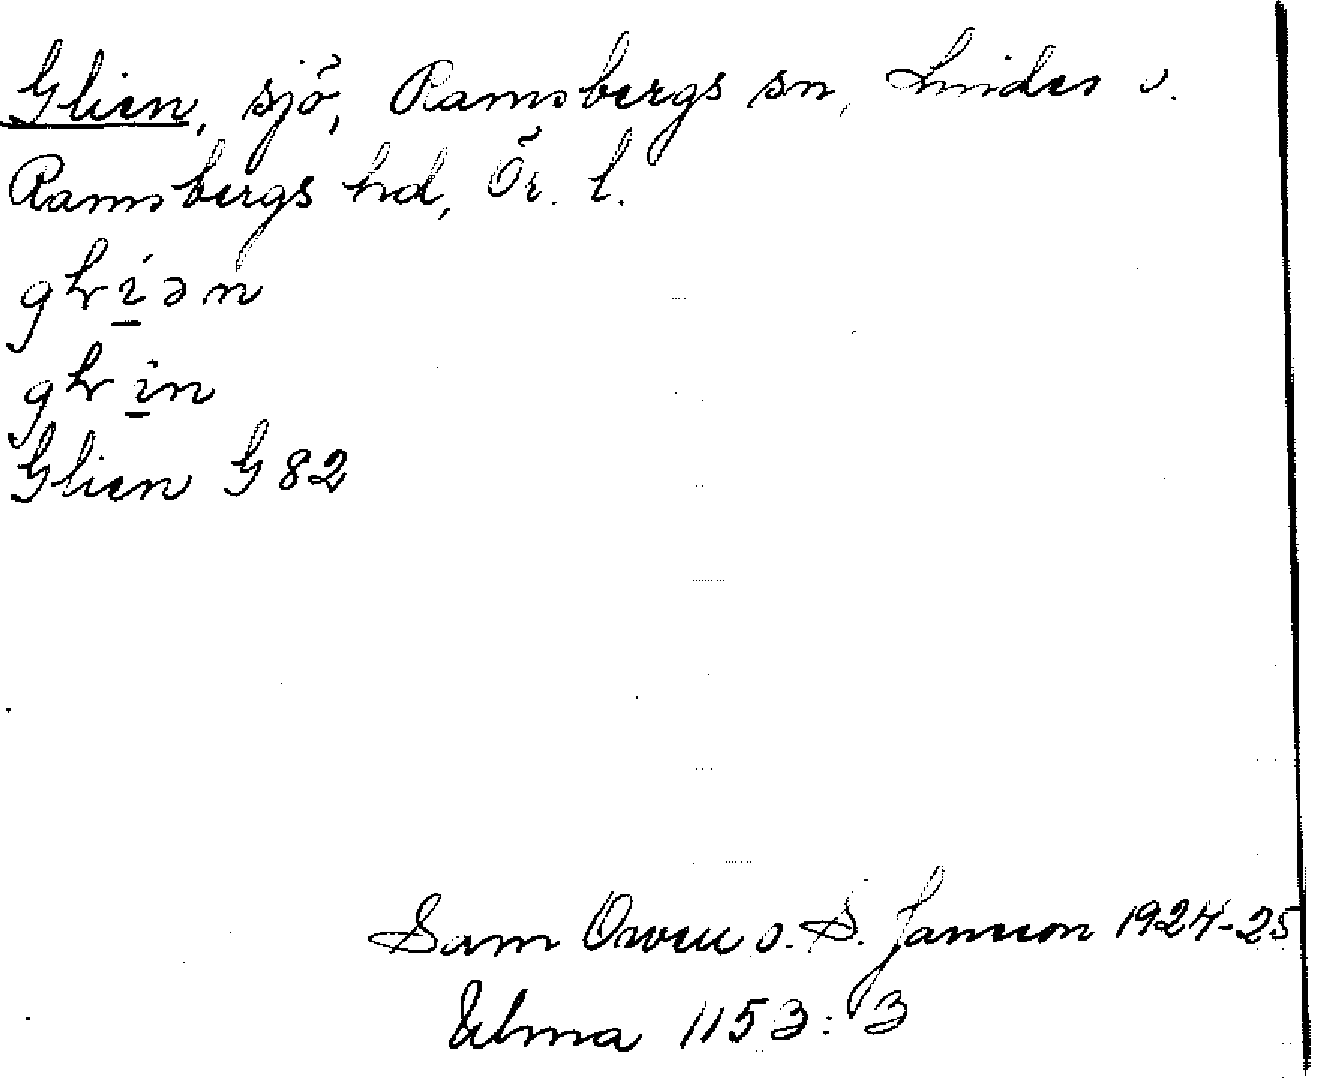 Glien, sjö, Ramsbergs sn, Lindes o.
Ramsbergs hd, Ör. l.
Glien G 82
Sam Owen o. S. Janson 1924-25
Ulma 1153:3